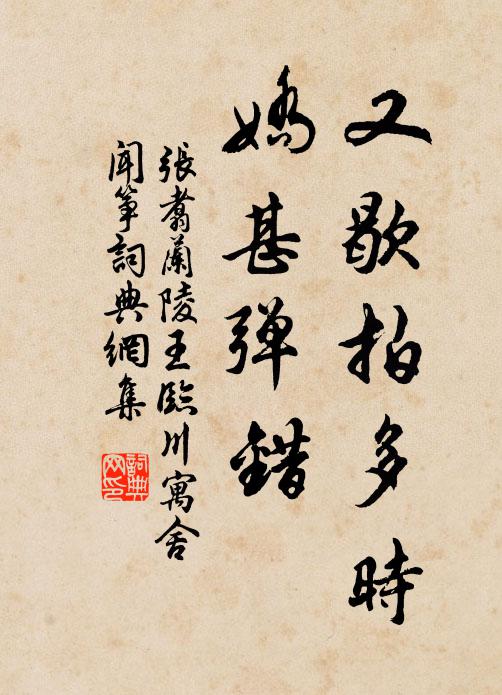 又歇拍多時
嬌甚弹錯
張翥蘭陵王臨川寓舍
聞箏詞典網集
詞典
网印